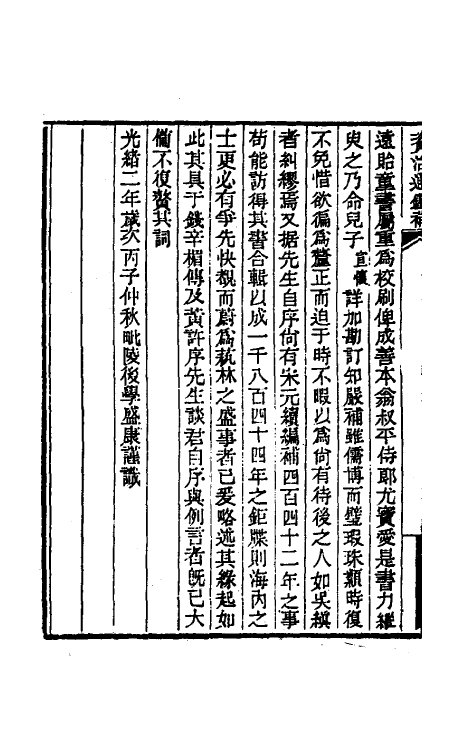 資治通鑑補
遠貽童書屬重爲校刷俾成善本翁叔平侍郎尤寶愛是書力縱
臾之乃命兒子宣懷詳加勘訂知嚴補雖儒博而璧瑕珠纇時復
不免惜欲徧爲釐正而迫于時不暇以爲尙有待後之人如吳縝
者糾繆焉又据先生自序尙有宋元續編補四百四十二年之事
苟能訪得其書合輯以成一千八百四十四年之鉅牒則海內之
士更必有爭先快覩而蔚爲蓺林之盛事者已爰略述其緣起如
此其具于錢辛楣傳及黃許序先生談君自序與例言者旣已大
備不復贅其詞
光緒二年歲次丙子仲秋毗陵後學盛康謹識